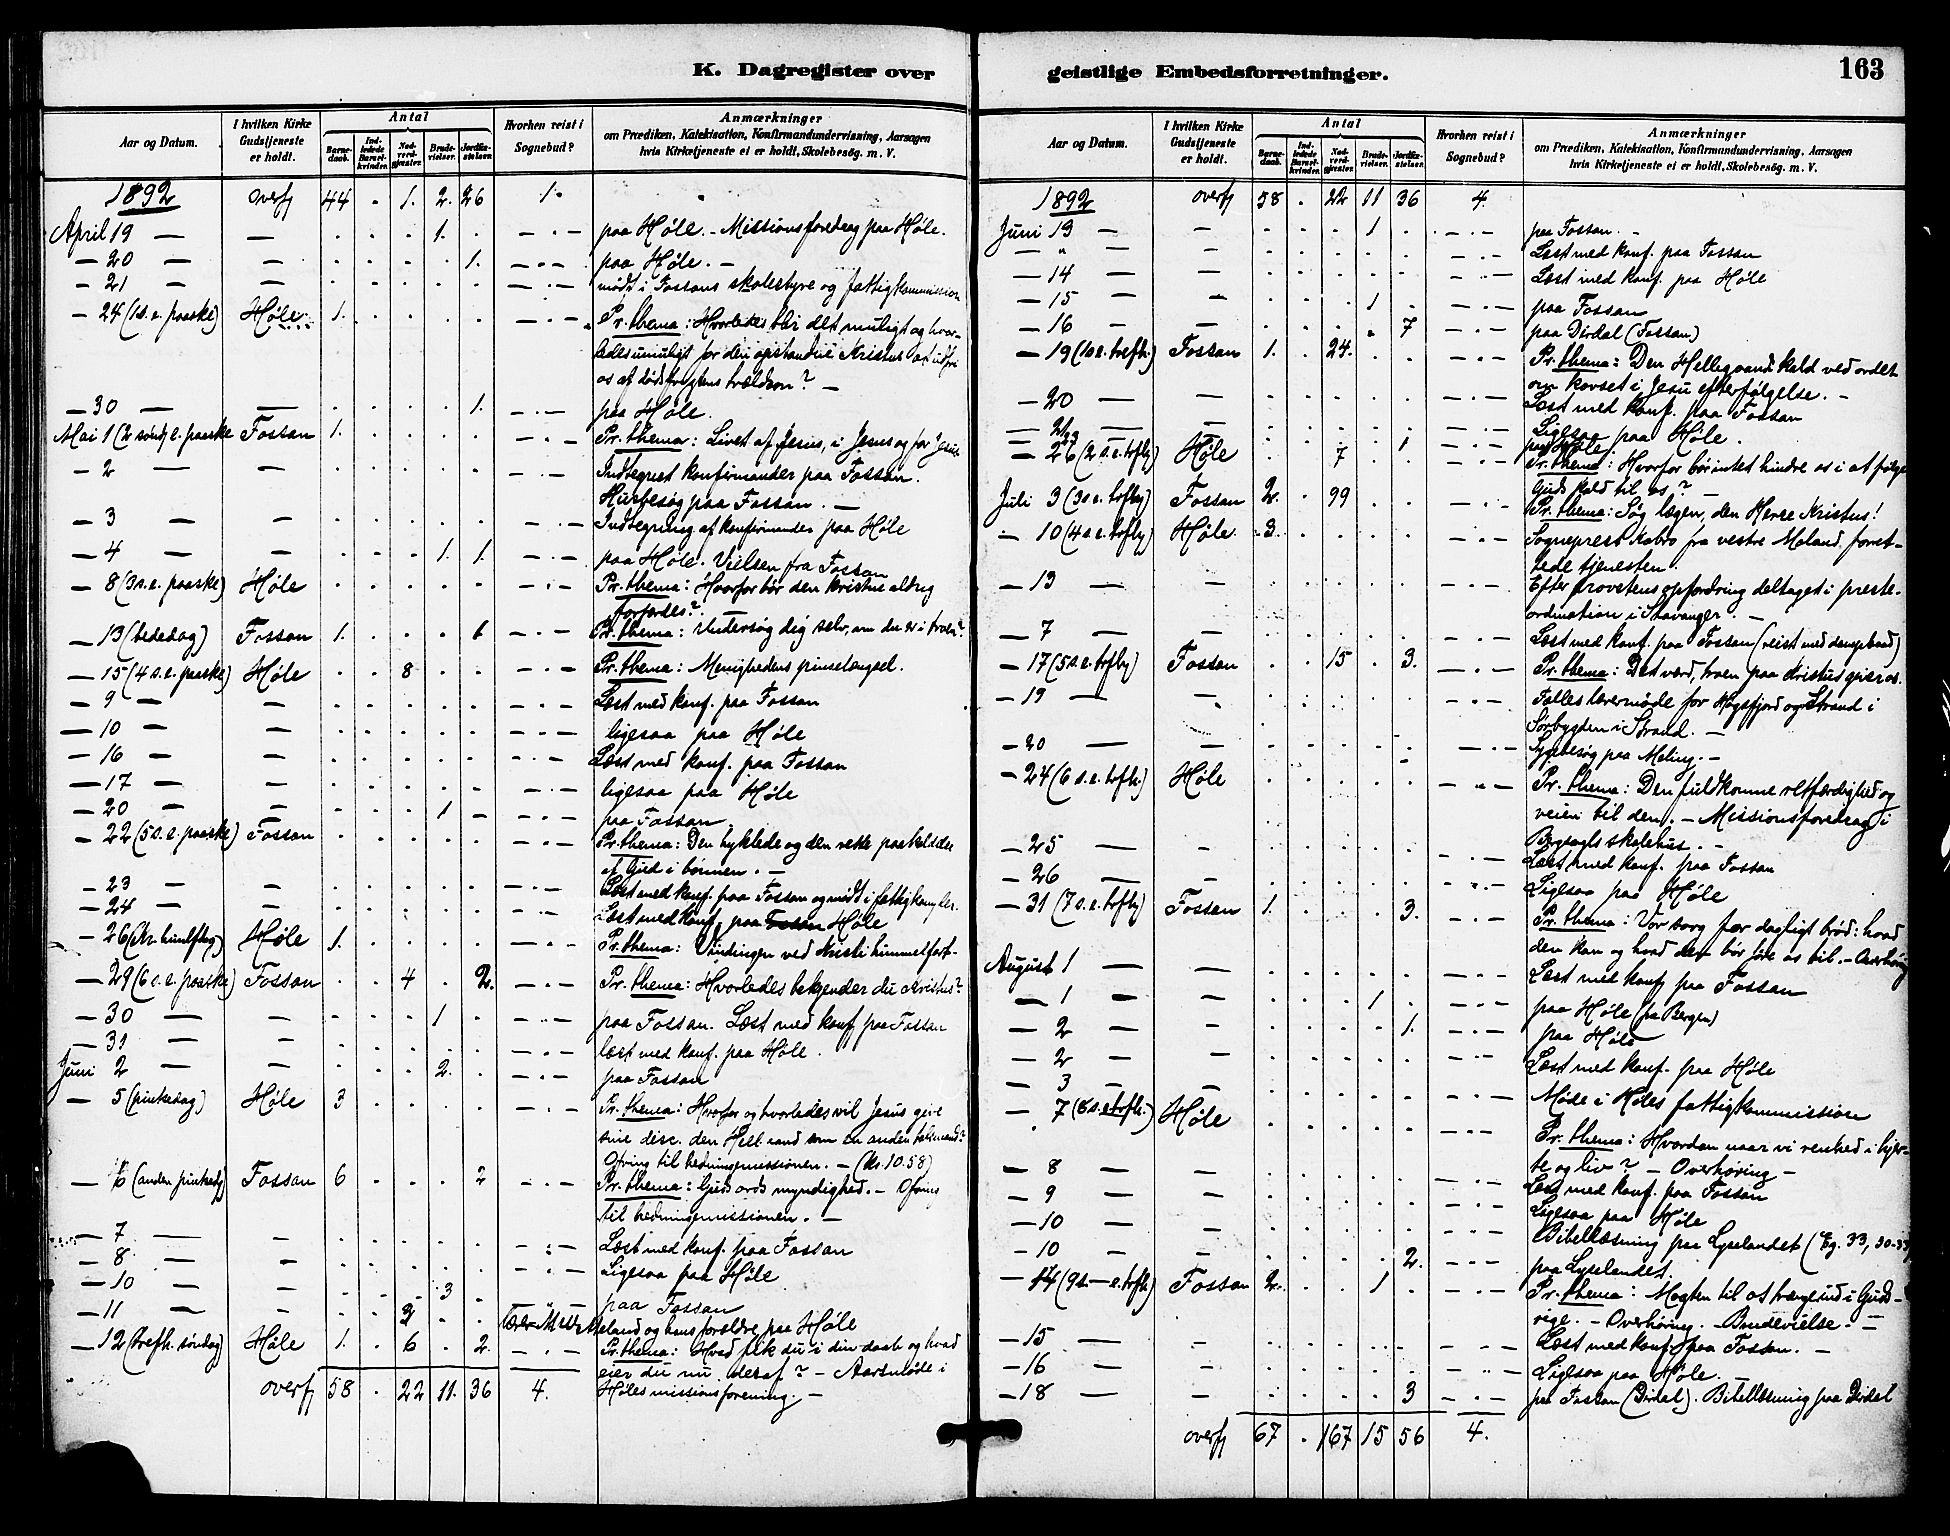 K. Dagregister over
Aar og Datum. I hvilken Kirke Gudstjeneste er holdt. Antal Barnedaab. Indledede Barselkvinder. Nadverdgjester. Brudevielser. Jordfæstelser. Hvorhen reist i Sognebud? Anmærkninger om Prædiken, Katekisation, Konfirmandundervisning, Aarsagen hvis Kirketjeneste ei er holdt, Skolebesøg. m. V.
1892 overf 44 . 1. 2. 26 1.
April 19 — — . . . 1. . — . — paa Høle. – Missionsforedrag paa Høle.
— 20 — — . . . . 1. — . — paa Høle. –
— 21 — — . . . . . — . — mødt i Fossans skolestyre og fattigkommission
— 24 (1 s. e. paaske) Høle 1. . . . . — . — Pr. thema: Hvorledes blir det muligt og hvor-
ledes umuligt for den opstandne Kristus at udfri
os af dødsfrygtens trældom? –
— 30 — — . . . . 1. — . — paa Høle.
Mai 1 (2 sønd. e. paaske Fossan 1. . . . . — . — Pr. thema: Livet af Jesus, i Jesus og for Jesus
— 2 — — . . . . . — . — Indtegnet konfirmander paa Fossan.
Husbesøg paa Fossan. –
— 3 — — . . . . . — . — Indtegning af konfirmander paa Høle
— 4 — — . . . 1. 1. — . — paa Høle. Vielsen fra Fossan
— 8 (3 s. e. paaske) Høle . . . . . — . — Pr. thema: Hvorfor bør den kristne aldrig
forfærdes?
— 13 (bededag) Fossan 1. . . . 6 — . — Pr. thema: Undersøg dig selv, om du er i troen?
— 15 (4 s. e. paaske) Høle . . 8 . . — . — Pr. thema: Menighedens pinselængsel.
— 9 — — . . . . . — . — Læst med konf. paa Fossan
— 10 — — . . . . . — . — ligesaa paa Høle
— 16 — — . . . . . — . — Læst med konf. paa Fossan
— 17 — — . . . . . — . — ligesaa paa Høle
— 20 — — . . . 1 . — . — paa Fossan
— 22 (5 s. e. paaske) Fossan . . . . . — . — Pr. thema: Den hyklede og den rette paakaldelse
af Gud i bønnen. –
— 23 — — . . . . . — . — Læst med konf. paa Fossan og mødt i fattigkom.
— 24 — — . . . . . — . — Læst med konf. paa Høle
— 26 (Kr. himlfdag) Høle 1. . . . . — . — Pr. thema: Vindingen ved Kristi himmelfart–
— 29 (6 s. e. paaske) Fossan . . 4 . 2. — . — Pr. thema: Hvorledes bekjender du Kristus?
— 30 — — . . . 1 . — . — paa Fossan. Læst med konf paa Fossan
— 31 — — . . . . . — . — læst med konf. paa Høle.
Juni 2 — — . . . 2. . — . — paa Fossan
— 5 (pinsedag) Høle 3 . . . . — . — Pr. thema: Hvorfor og hvorledes vil Jesus give
sine disc. den Hell. aand som en anden talsmand?
Ofring til hedningemissionen. – (kr. 10.58)
— 6 (anden pinsedg) Fossan 6 . . . 2 — . — Pr. thema: Guds ords myndighed. – Ofring
til hedningemissionen. –
— 7 — — . . . . . — . — Læst med konf. paa Fossan
— 8 — — . . . . . — . — Ligesaa paa Høle
— 10 — — . . . 3 . paa Fossan
— 11 — — . . 3 . . og hans forældre paa Høle
— 12 (trefh. søndag) Høle 1. . 6 . 2. — . — Pr. thema: Hvad fik du i din daab og hvad
eier du nu deraf? – Aarsmøde i
overf 58 . 22 11. 36 4. Høles missionsforening –
geistlige Embedsforretninger. 163
Aar og Datum. I hvilken Kirke Gudstjeneste er holdt. Antal Barnedaab. Indledede Barselkvinder. Nadverdgjester. Brudevielser. Jordfæstelser. Hvorhen reist i Sognebud? Anmærkninger om Prædiken, Katekisation, Konfirmandundervisning, Aarsagen hvis Kirketjeneste ei er holdt, Skolebesøg. m. V.
1892 overf 58 . 22 11 36 4.
Juni 13 — — . . . 1 . — . — paa Fossan. –
— " — — . . . . . — . — Læst med konf. paa Fossan
— 14 — — . . . . . — . — Læst med konf. paa Høle
— 15 — — . . . 1 . — . — paa Fossan
— 16 — — . . . . 7 — . — paa Dirdal (Fossan)
— 19 (1 s. e. trefh.) Fossan 1. . 24. . . — . — Pr. thema: Den Helligaands kald ved ordet
om korset i Jesu efterfølgelse. –
— 20 — — . . . . . — . — Læst med konf. paa Fossan
Ligesaa paa Høle.
— 23 — — . . . . 1 — . — paa Høle
— 26 (2 s. e. trefh) Høle . . 7 . . — . — Pr. thema: Hvorfor bør intet hindre os i at følge
Guds kald til os? –
Juli 3 (3 s. e. trefh) Fossan 2. . 99 . . — . — Pr. thema: Søg lægen, den Herre Kristus!
— 10 (4 s. e. trefh) Høle 3. . . . . — . — Sogneprest fra vestre Moland forret-
tede tjenesten.
— 13 — — . . . . . — . — Efter provstens opfordring deltaget i preste-
ordination i Stavanger. –
— 7 — — . . . . . — . — Læst med konf. paa Fossan (reist med dampbaad)
— 17 (5 s. e. trefh) Fossan . . 15 . 3. — . — Pr. thema: Det værd, troen paa Kristus giver os.
— 19 — — . . . . . — . — Fælles lærermøde for Høgsfjord og Strand i
Sørbygden i Strand. –
— 20 — — . . . . . — . — Sygebesøg paa Meling. –
— 24 (6 s. e. trefh) Høle . . . . . — . — Pr. thema: Den fuldkomne retfærdighed og
veien til den. – Missionsforedrag i
Bergsagels skolehus. –
— 25 — — . . . . . — . — Læst med konf. paa Fossan
— 26 — — . . . . . — . — Ligesaa paa Høle
— 31 (7 s. e. trefh) Fossan 1. . . . 3. — . — Pr. thema: Vor sorg for dagligt brød: hvad
den kan og hvad den bør føre os til. – Overhøring
August 1 — — . . . . . — . — Læst med konf paa Fossan
— 1 — — . . . 1 . — . — paa Høle (fra Bergen)
— 2 — — . . . . 1. — . — paa Høle
— 2 — — . . . . . — . — Læst med konf. paa Høle
— 3 — — . . . . . — . — Møde i Høles fattigkommission
— 7 (8 s. e. trefh.) Høle . . . . . — . — Pr. thema: Hvordan naar vi renhed i hjer-
te og liv? – Overhøring –
— 8 — — . . . . . — . — Læst med konf. paa Fossan
— 9 — — . . . . . — . — Ligesaa paa Høle
— 10 — — . . . . . — . — Bibellæsning paa Lyselandet (Ez. 33, 30-33)
— 10 — — . . . . 2. — . — paa Lyselandet
— 14 (9 s. — e. trefh) Fossan 2. . . 1 . — . — Pr. thema: Magten til at trænge ind i Guds-
rige. – Overhøring. – Brudevielse. –
— 15 — — . . . . . — . — Læst med konf. paa Fossan. –
— 16 — — . . . . . — . — Ligesaa paa Høle.
— 18 — — . . . . 3 — . — paa Fossan (Dirdal). Bibellæsning paa Dirdal
overf 67 . 167 15 56 4.